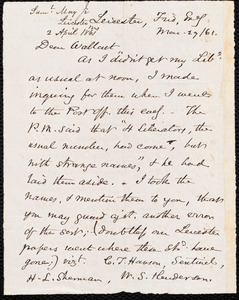 Saml. May Jr
Leicester Leicester, Frid. Evg
2 April 1861 Mar. 29/61.
Dear Wallcut
As I didn't get my Libs
as usual at noon, I made
inquiry for them when I went
to the Post off. this evg. — The
P.M. said that "4 Liberators, the
usual number, had come", but
with strange names, & he had
laid them aside. — I took the
names, & mention them to you, that
you may guard agst. another error
of the sort; (doubtless our Leicester
papers went where these shd. have
gone;) vizt. C. T. Hanson, Sentinel,
H. L. Sherman, W. S. Henderson.